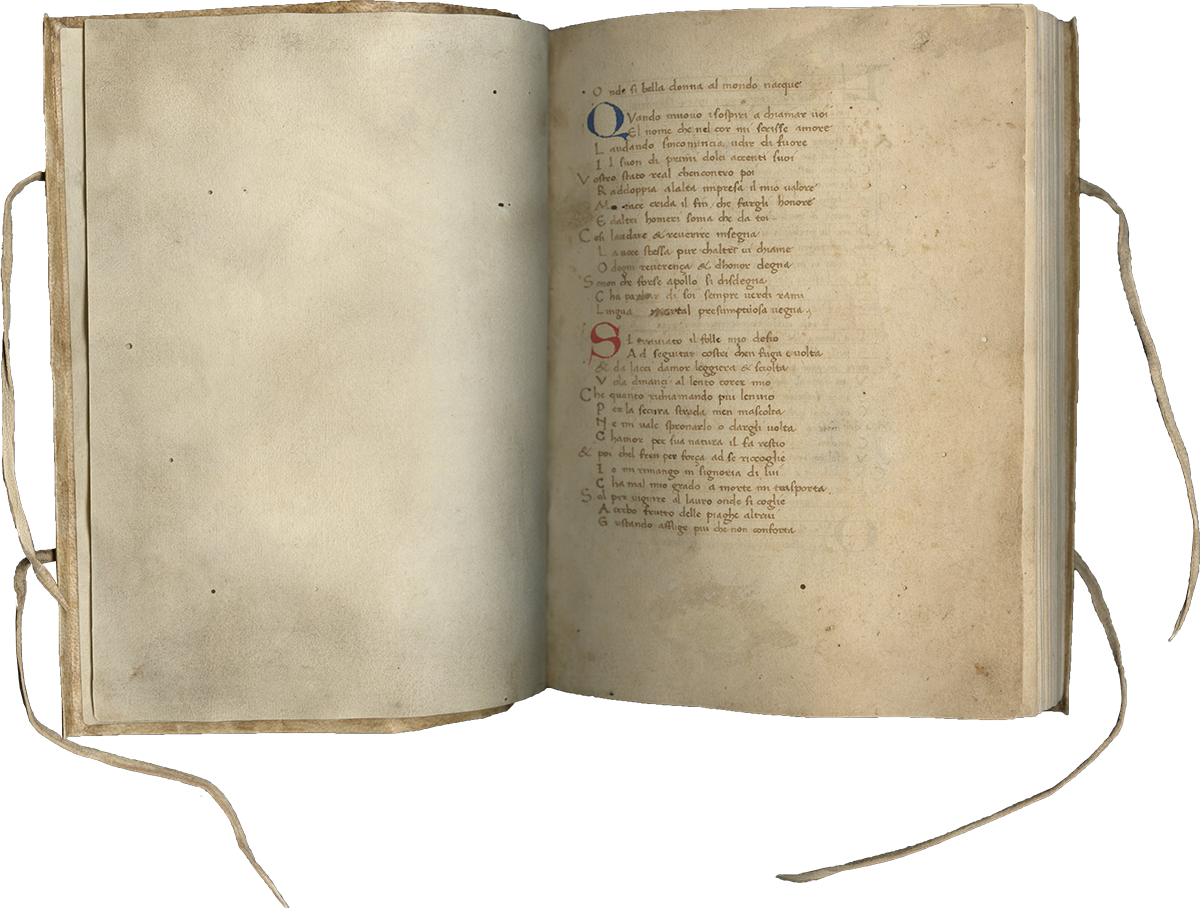 O nde si bella donna al mondo nacque
Q Vando muovo isospiri a chiamar uoi
E l nome che nel cor mi scrisse amore
L audando sincomincia udir di fuore
I l suon di primi dolci accenti suoi
V ostro stato real chencontro poi
R addoppia alalta impresa il mio valore
M a tace crida il fin, che fargli honore
E daltri homeri soma che da toi
C osi laudare & reuerire insegna
L a uoce stessa pur chaltri ui chiame
O dogni reuerença & dhonor degna
S enon che forse apollo si disdegna
C ha parlar di soi sempre uerdi rami
L ingua mortal presumptuosa uegna
S I trauiato il folle mio desio
A d seguitar costei chen fuga e uolta
& da lacci damor leggiera & sciolta
V ola dinançi al lento correr mio
C he quanto richiamando piu lenuio
P er la secura strada men mascolta
N e mi vale spronarlo o dargli uolta
C hamor per sua natura il fa restio
& poi chel fren per força ad se riccoglie
I o mi rimango in signoria di lui
C ha mal mio grado a morte mi trasporta
S ol per uignire al lauro onde si coglie
A cerbo frutto delle piaghe altrui
G ustando afflige piu che non conforta